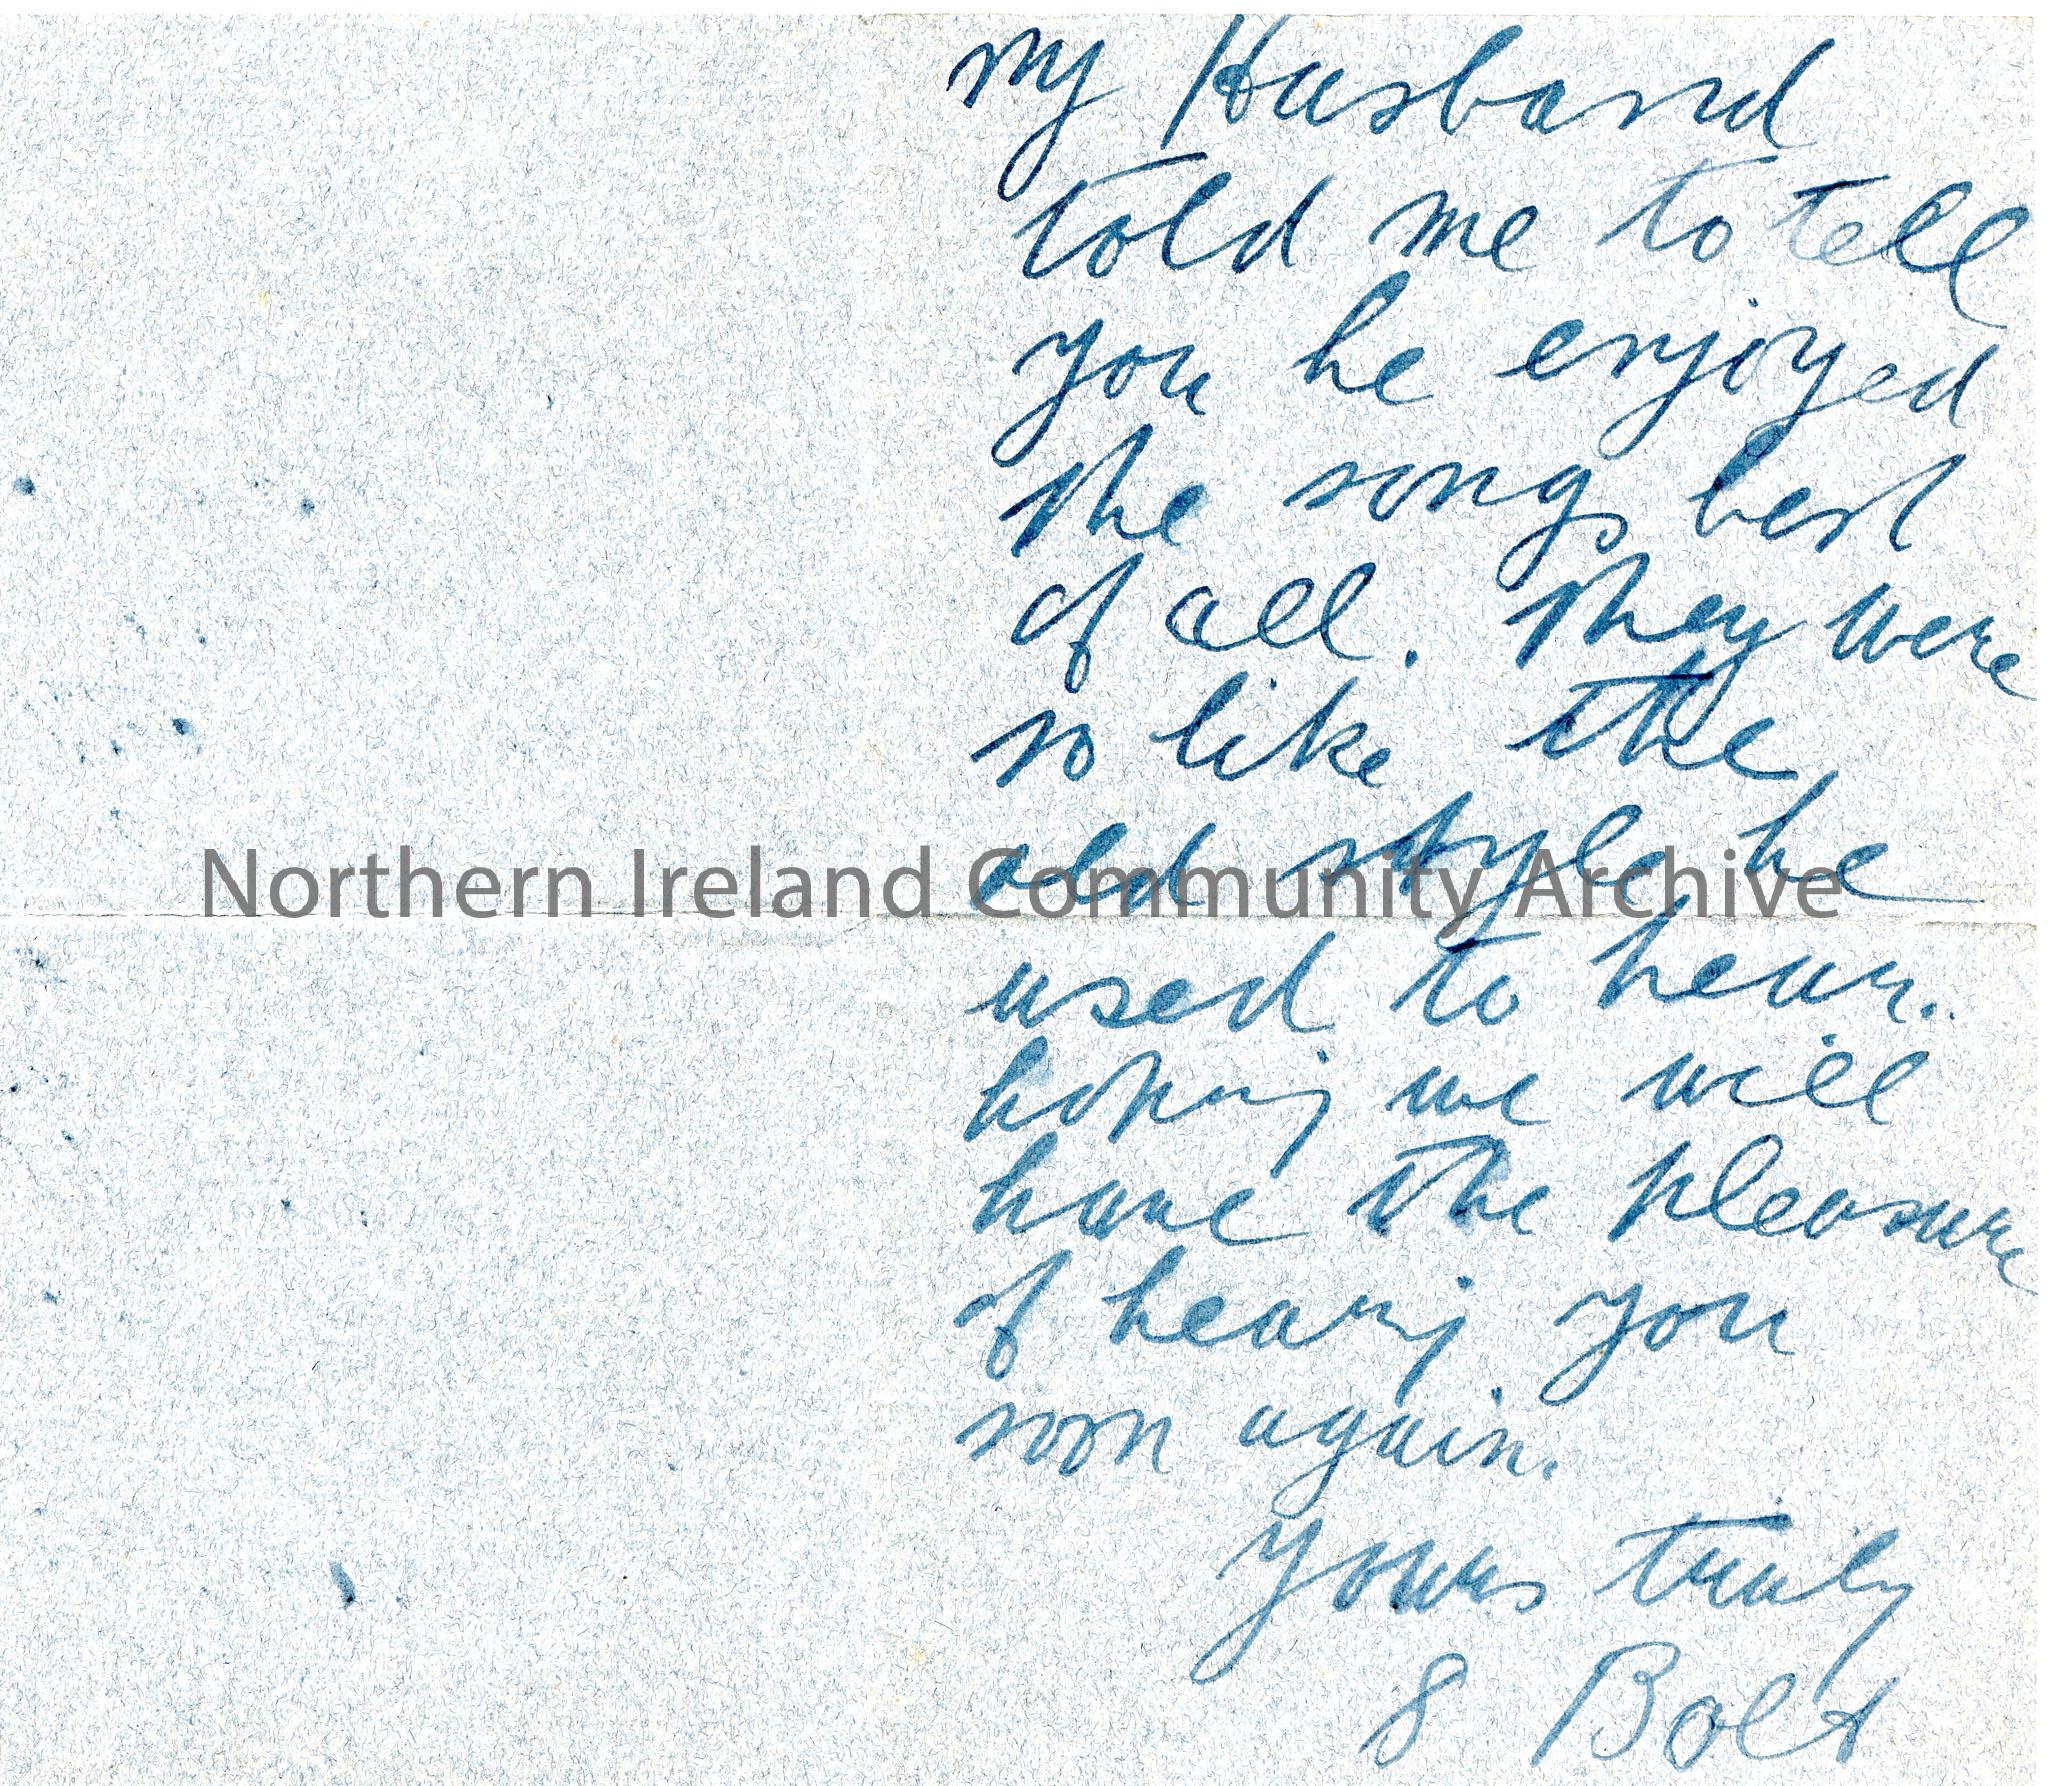 my Husband
told me to tell
you he enjoyed
the songs best
of all. They were
so like the
old style he
used to hear.
hoping we will
have the pleasure
of hearing you
soon again.
Yours truly
S Bolt
Northern Ireland Community Archive